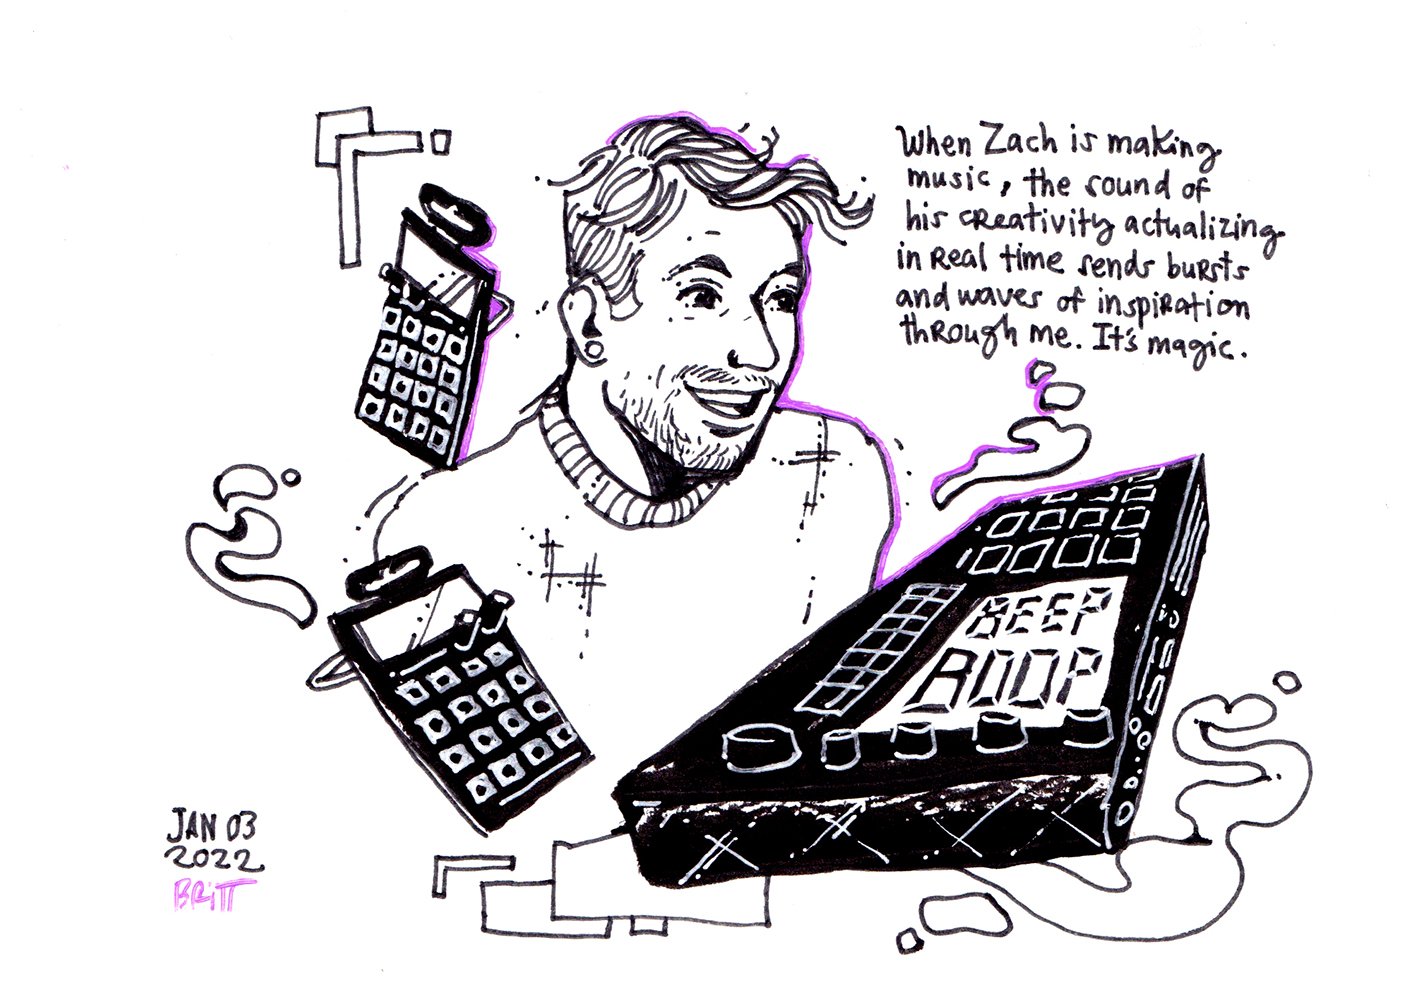 When Zach is making
music, the sound of
his creativity actualizing
in real time sends bursts
and waves of inspiration
through me. It's magic.
BEEP
BOOP
JAN 03
2022
BRITT